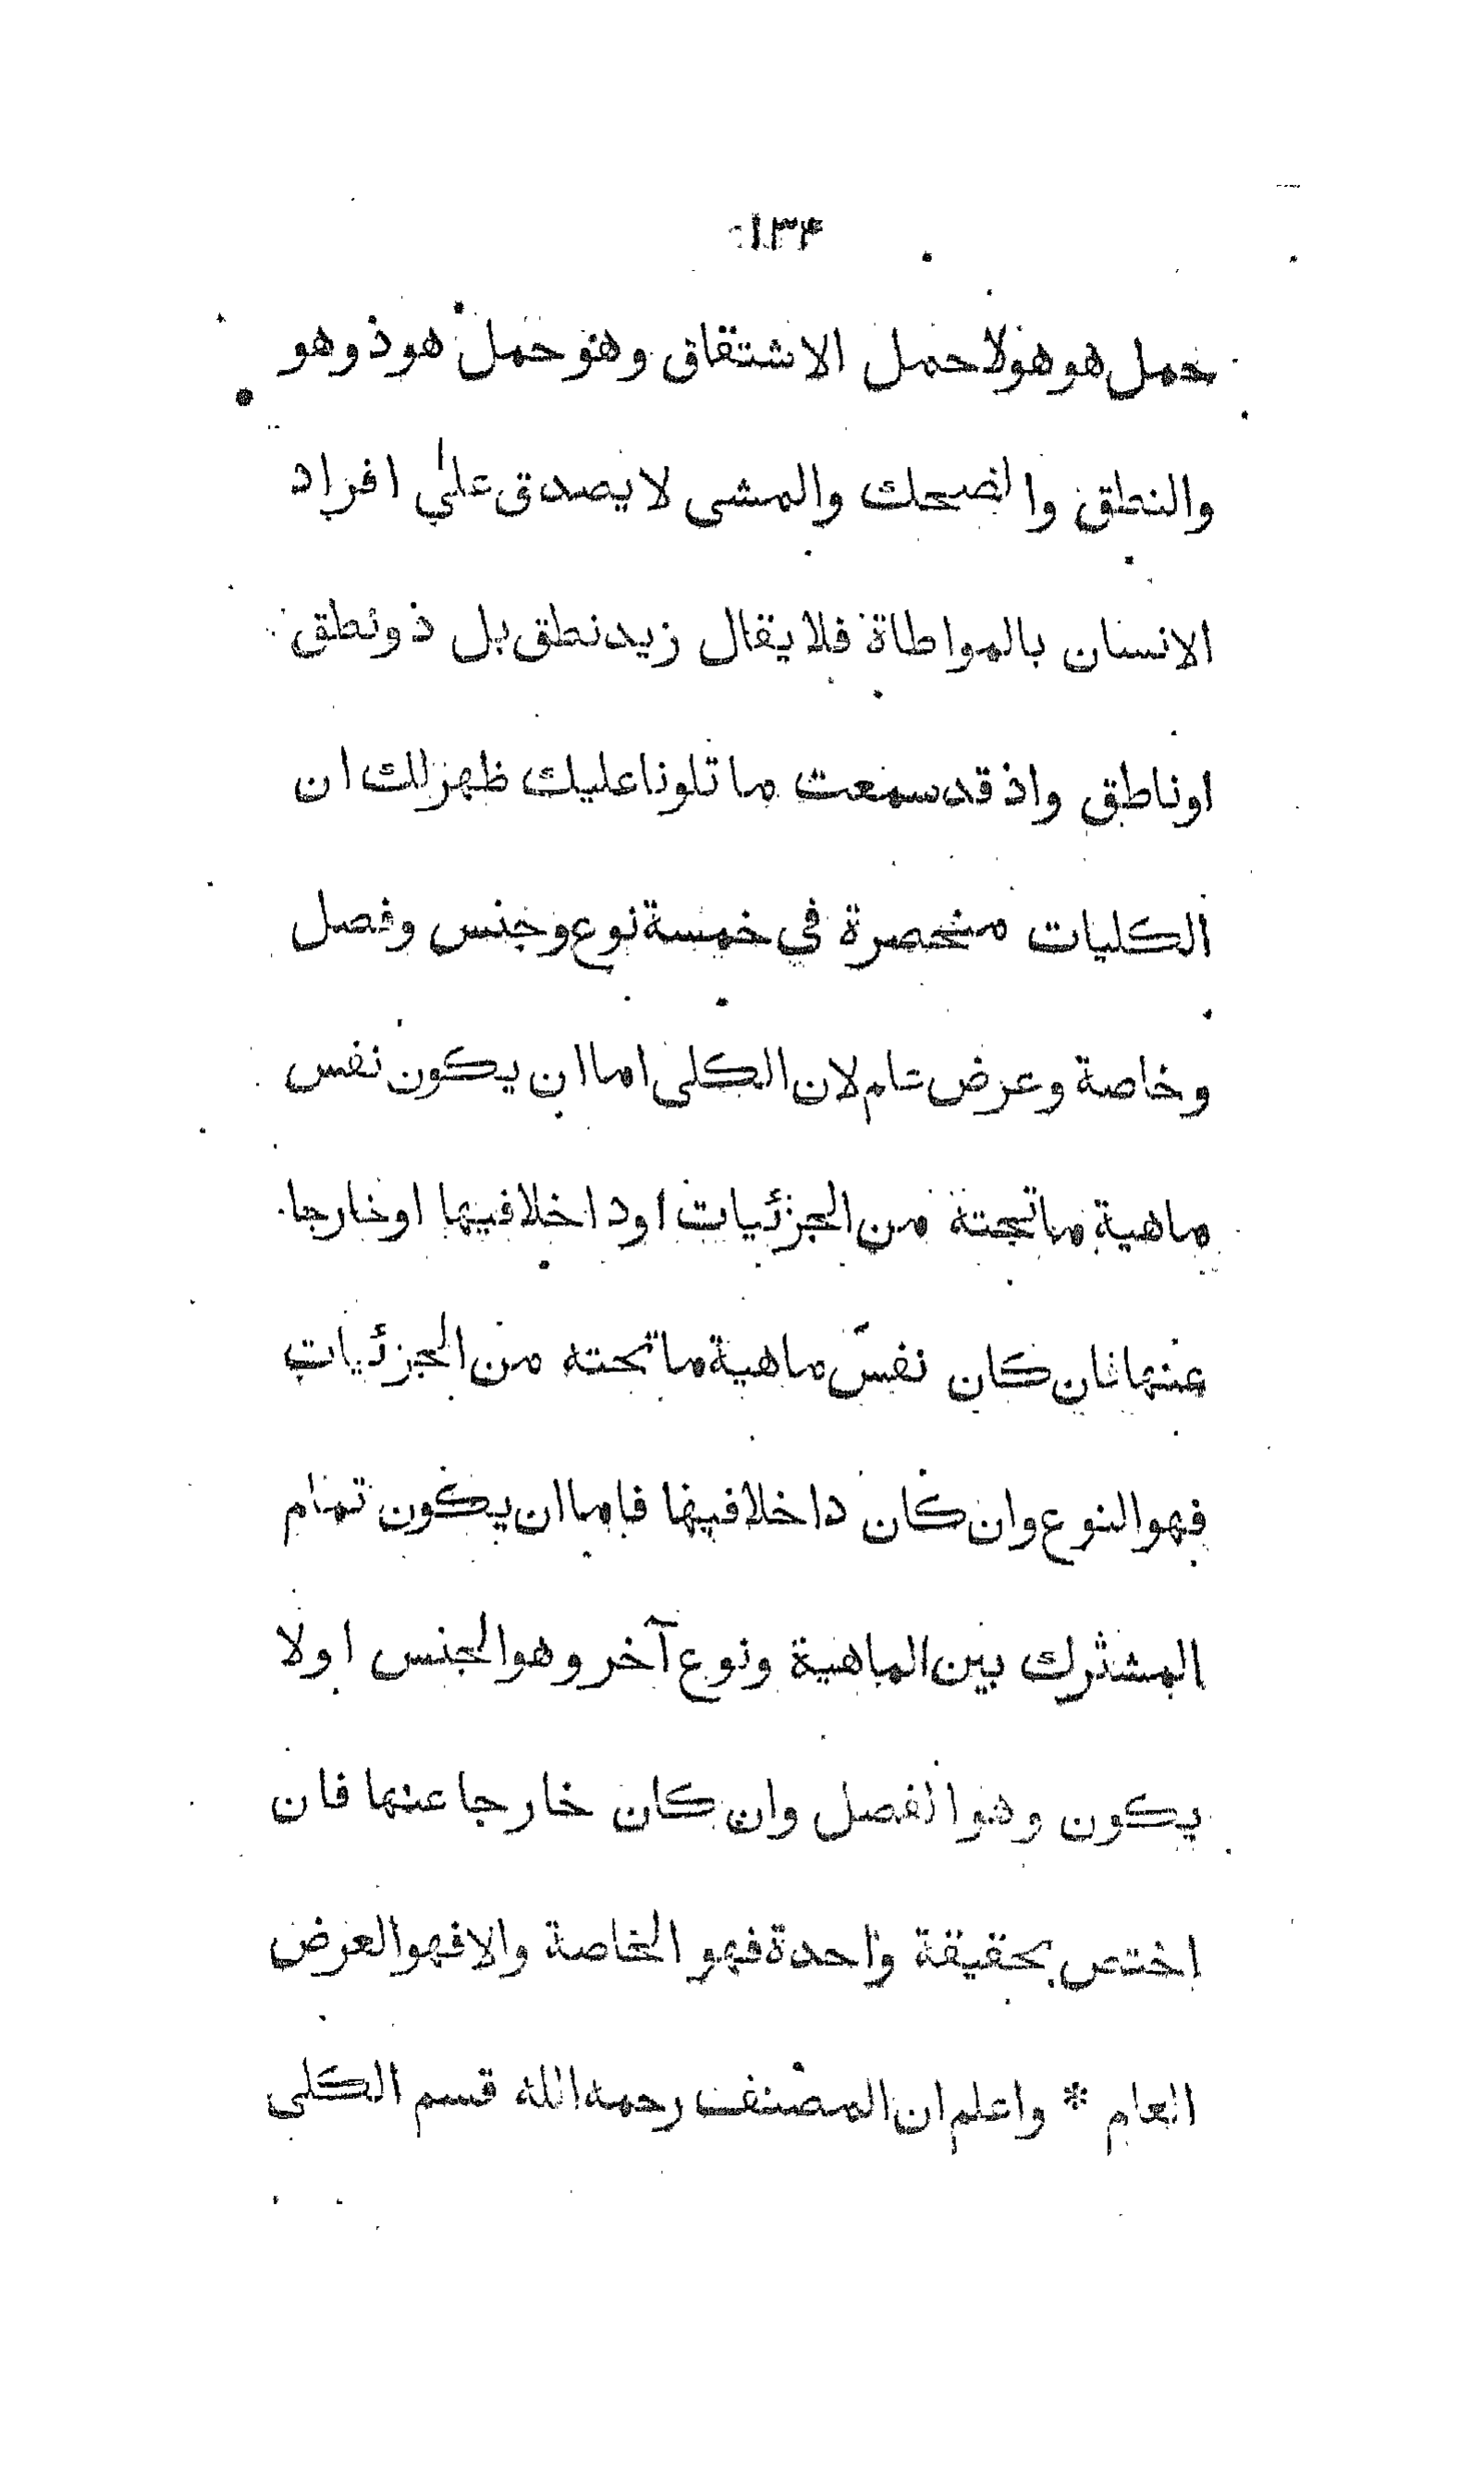 ۱۳۴
حمل هو هو لا حمل الاشتقاق وهو حمل هو ذو هو
والنطق والضحك والمشى لا يصدق على افراد
الانسان بالمواطاة فلا يقال زيد نطق بل ذو نطق
او ناطق واذ قد سمعت ما تلونا عليك ظهر لك ان
الكليات منحصرة في خمسة نوع وجنس وفصل
وخاصة وعرض عام لان الكلى اما ان يكون نفس
ماهية ما تحته من الجزئيات او داخلا فيها او خارجا
عنها فان كان نفس ماهية ما تحته من الجزئيات
فهو النوع وان كان داخلا فيها فاما ان يكون تمام
المشترك بين الماهية ونوع آخر وهو الجنس او لا
يكون وهو الفصل وان كان خارجا عنها فان
اختص بحقيقة واحدة فهو الخاصة والا فهو العرض
العام * واعلم ان المصنف رحمه الله قسم الكلى